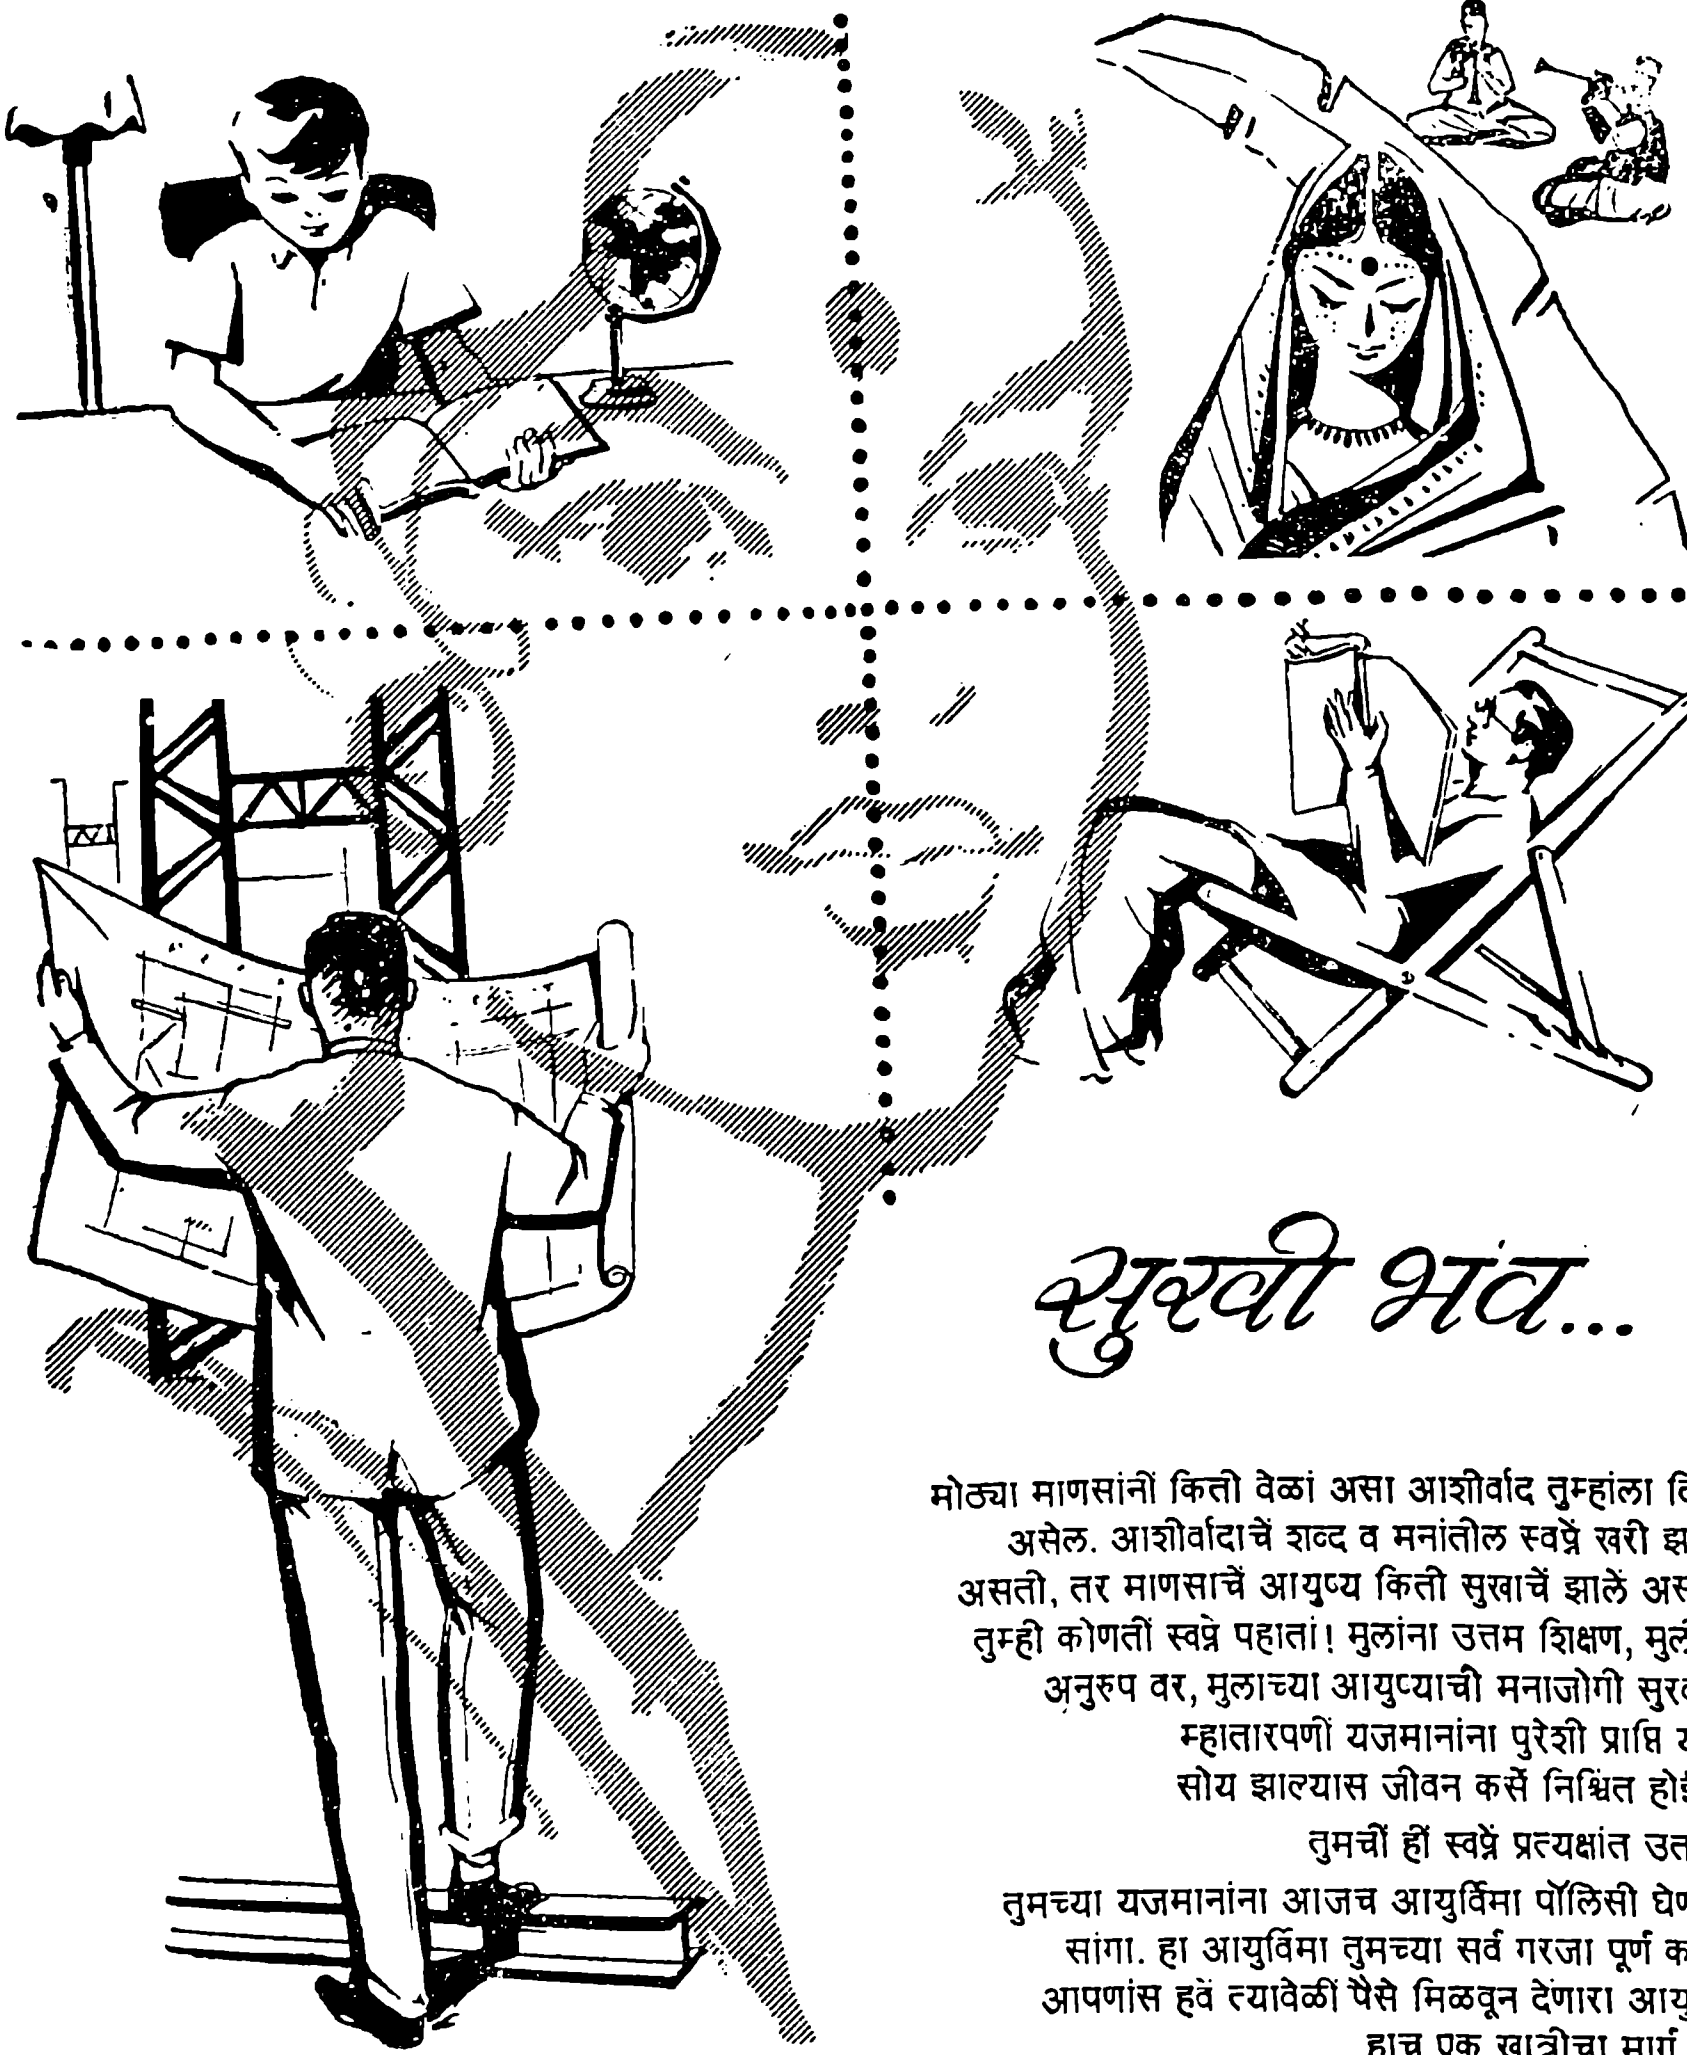 सुखी भव...
मोठ्या माणसांनीं किती वेळां असा आशीर्वाद तुम्हांला
असेल. आशीर्वादाचें शब्द व मनांतील स्वप्नें खरी
असती, तर माणसाचें आयुष्य किती सुखाचें झालें
तुम्ही कोणतीं स्वप्ने पहातां! मुलांना उत्तम शिक्षण,
अनुरुप वर, मुलाच्या आयुष्याची मनाजोगी
म्हातारपणीं यजमानांना पुरेशी प्राप्ति
सोय झाल्यास जीवन कसें निश्चिंत
तुमचीं हीं स्वप्नें प्रत्यक्षांत
तुमच्या यजमानांना आजच आयुर्विमा पॉलिसी
सांगा. हा आयुर्विमा तुमच्या सर्व गरजा पूर्ण
आपणांस हवे त्यावेळीं पैसे मिळवून देंणारा
हाच एक खात्रीचा मार्ग